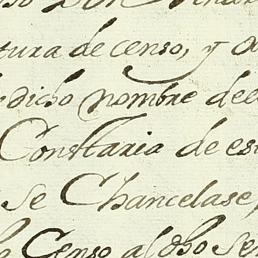 tura de censo, y
dicho nombre de
Constaria de es
se Chancelase,
Censo al dho Se